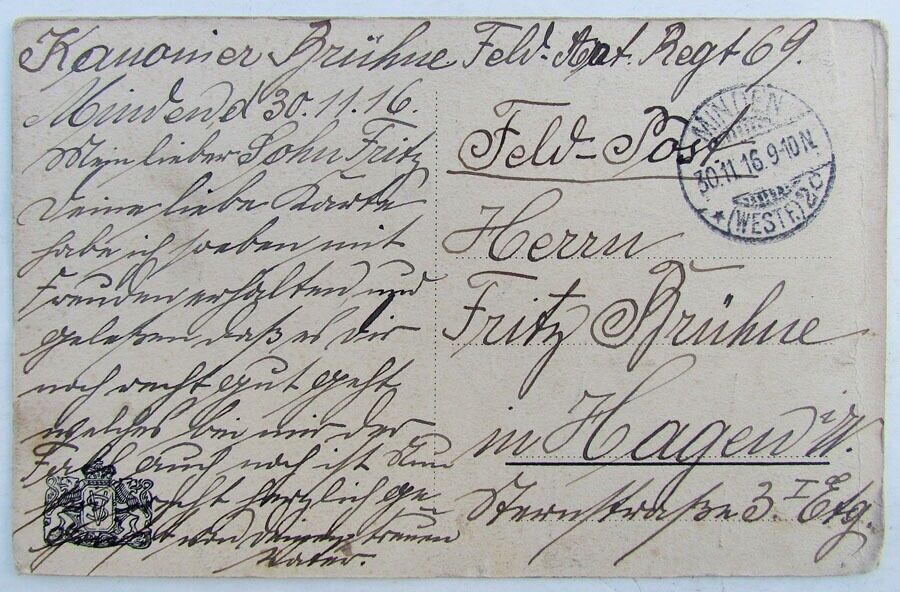 Kanonier Brühne Feld-Art. Regt 69.
Minden d 30.11.16.
Mein lieber Sohn Fritz
Deine liebe Karte
habe ich soeben mit
Freuden erhalten und
geleßen daß es dir
noch recht gut geht,
welches bei mir der
Fall auch noch ist Nun
recht herzlich ge
von Deinem treuen
Vater.
MINDEN
30.11.16.9-10N
(WESTF.) 2c
Feld-Post
Herrn
Fritz Brühne
in Hagen i/W.
Sternstraße 3. I Etg.